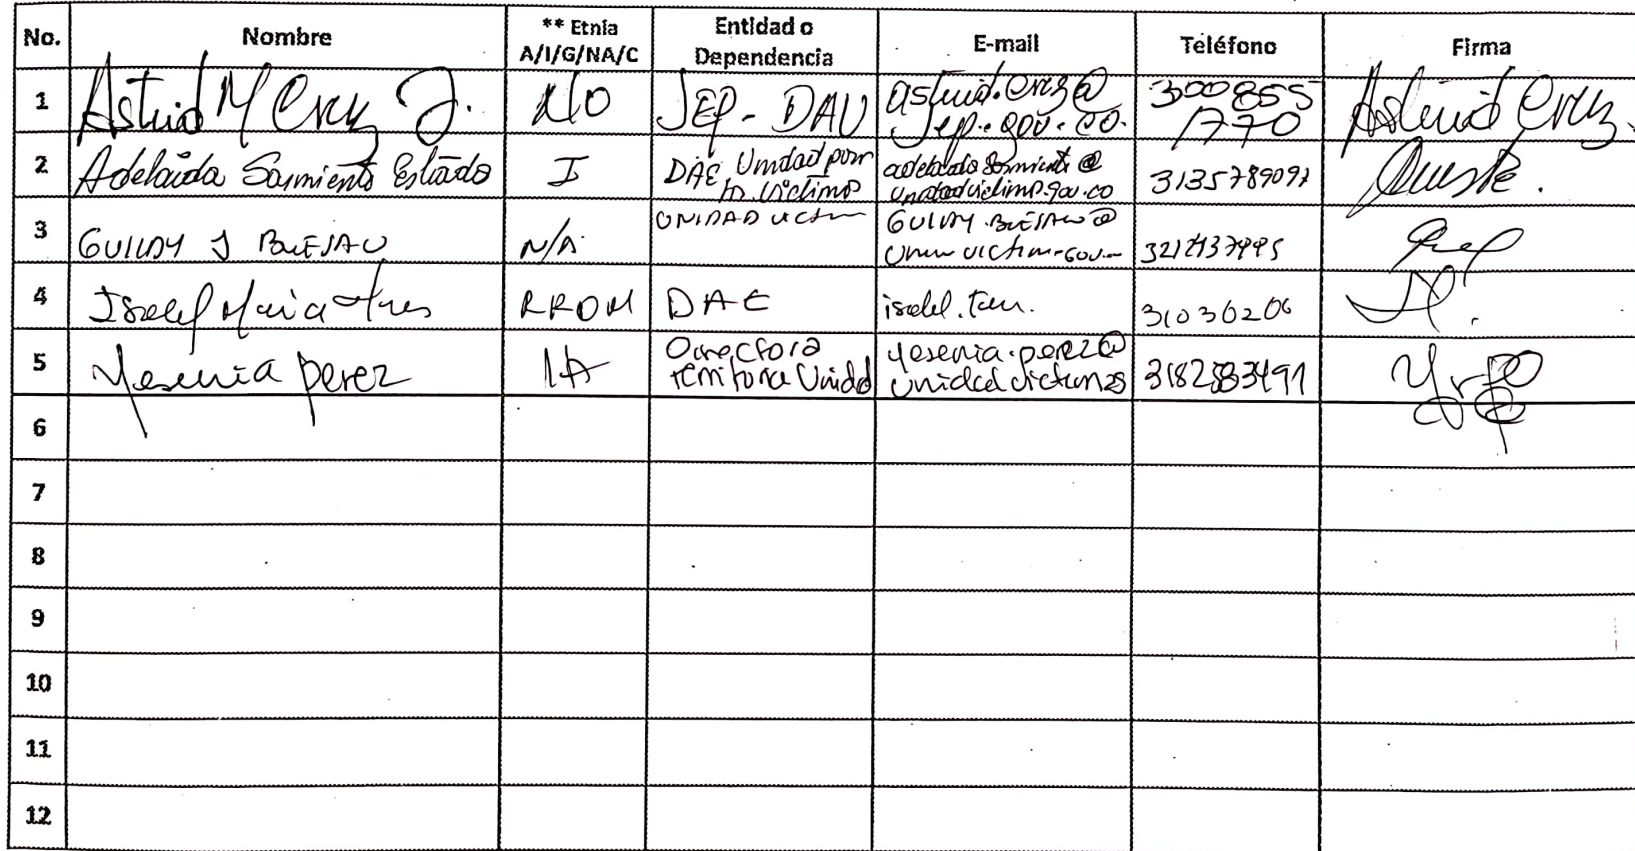 No. Nombre ** Etnia A/I/G/NA/C Entidad o Dependencia E-mail Teléfono Firma
1 Astrid M Cruz J. NO JEP - DAV astrid.cruz@ jep.gov.co. 300855 1770 Astrid Cruz
2 Adelaida Sarmiento Estrada I DAE, Unidad para la Victimas adelaida.Sarmiento@ unidadvictimas.gov.co 3135789097
3 GUILDY J N/A UNIDAD VICTIM
4 Isabel Maria RROM DAE isabel. 31030206
5 Yesenia perez NA Directora territorial Unidad yesenia.perez@ unidadvictimas 3182583491
6
7
8
9
10
11
12